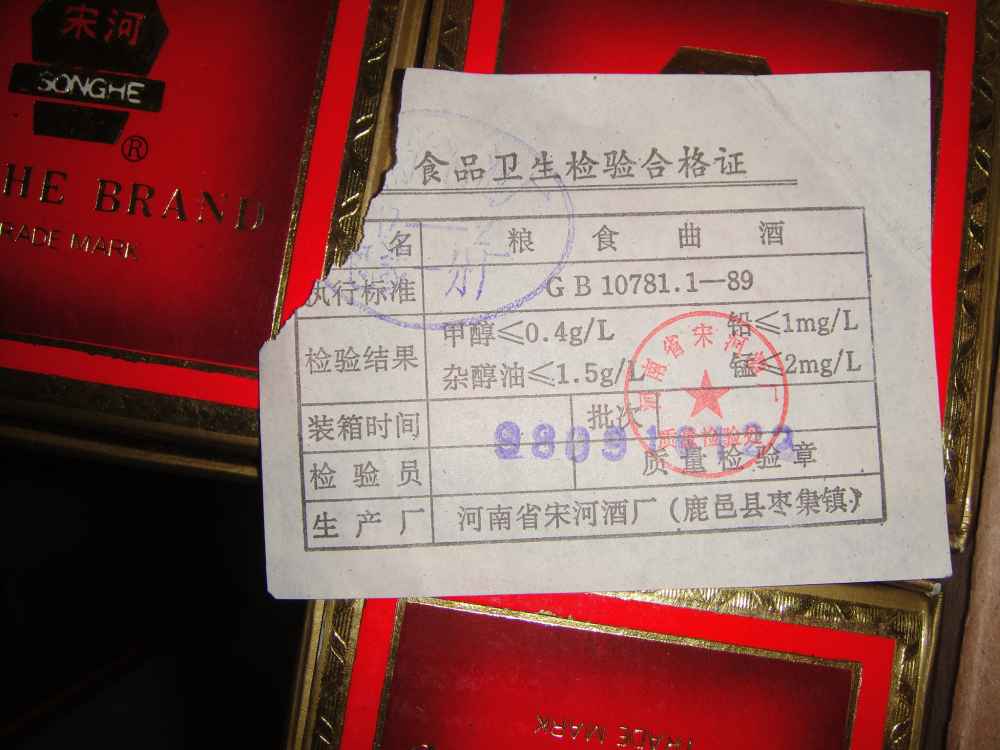 宋河
SONGHE
®
HE BRAND
TRADE MARK
食品卫生检验合格证
名 粮食曲酒
执行标准 GB 10781.1—89
检验结果 甲醇≤0.4g/L 铅≤1mg/L
杂醇油≤1.5g/L 锰≤2mg/L
装箱时间 批次
检验员 质量检验章
生产厂 河南省宋河酒厂(鹿邑县枣集镇)
河南省宋河酒厂
质量检验处
TRADE MARK